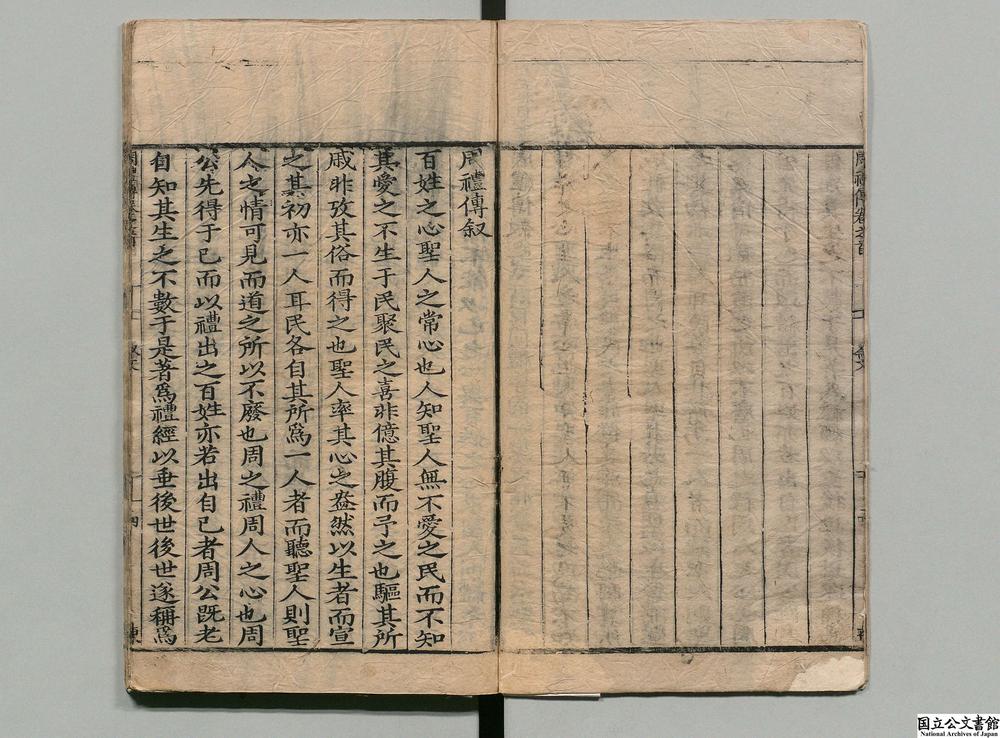 周禮傳叙
百姓之心聖人之常心也人知聖人無不愛之民而不知
其愛之不生于民聚民之喜非億其腹而予之也驅其所
戚非攷其俗而得之也聖人率其心之盎然以生者而宣
之其初亦一人耳民各自其所爲一人者而聽聖人則聖
人之情可見而道之所以不廢也周之禮周人之心也周
公先得于已而以禮出之百姓亦若出自已者周公旣老
自知其生之不數于是著爲禮經以垂後世後世遂稱爲
周禮傳卷之首
叙文
四
周禮傳卷之首
叙文
国立公文書館
National Archives of Japan